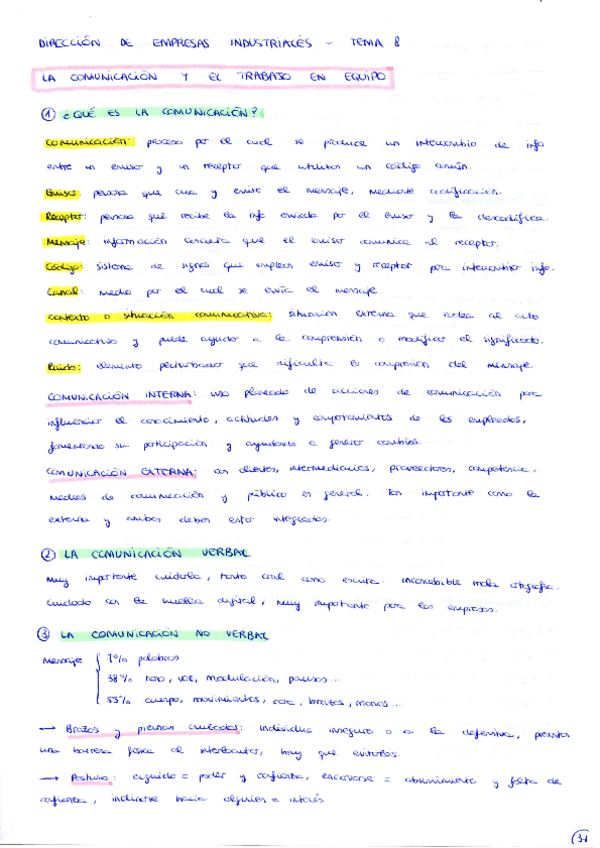 DIRECCIÓN DE EMPRESAS INDUSTRIALES - TEMA 8
LA COMUNICACIÓN Y EL TRABAJO EN EQUIPO
① ¿QUÉ ES LA COMUNICACIÓN?
Comunicación: proceso por el cual se produce un intercambio de info
entre un emisor y un receptor que utilizan un código común.
Emisor: persona que crea y emite el mensaje, mediante codificación.
Receptor: persona que recibe la info enviada por el emisor y la descodifica.
Mensaje: información concreta que el emisor comunica al receptor.
Código: sistema de signos que emplean emisor y receptor para intercambiar info.
Canal: medio por el cual se envía el mensaje.
Contexto o situación comunicativa: situación externa que rodea al acto
comunicativo y puede ayudar a la comprensión o modificar el significado.
Ruido: elemento perturbador que dificulta la compresión del mensaje.
COMUNICACIÓN INTERNA: uso planeado de acciones de comunicación para
influenciar el conocimiento, actitudes y comportamientos de los empleados,
fomentando su participación y ayudando a generar cambios.
COMUNICACIÓN EXTERNA: con clientes, intermediarios, proveedores, competencia,
medios de comunicación y público en general. Tan importante como la
externa y ambas deben estar integradas.
② LA COMUNICACIÓN VERBAL
Muy importante cuidarla, tanto oral como escrita. mala ortografía.
Cuidado con la huella digital, muy importante para las empresas.
③ LA COMUNICACIÓN NO VERBAL
Mensaje { 7% palabras
38% tono, voz, modulación, pausas...
55% cuerpo, movimientos, cara, brazos, manos...
→ Brazos y piernas cruzados: individuo inseguro o a la defensiva, presenta
una barrera física al interlocutor, hay que evitarlos.
→ Postura: erguido = poder y confianza, encorvarse = aburrimiento y falta de
confianza, inclinarse hacia alguien = interés
31